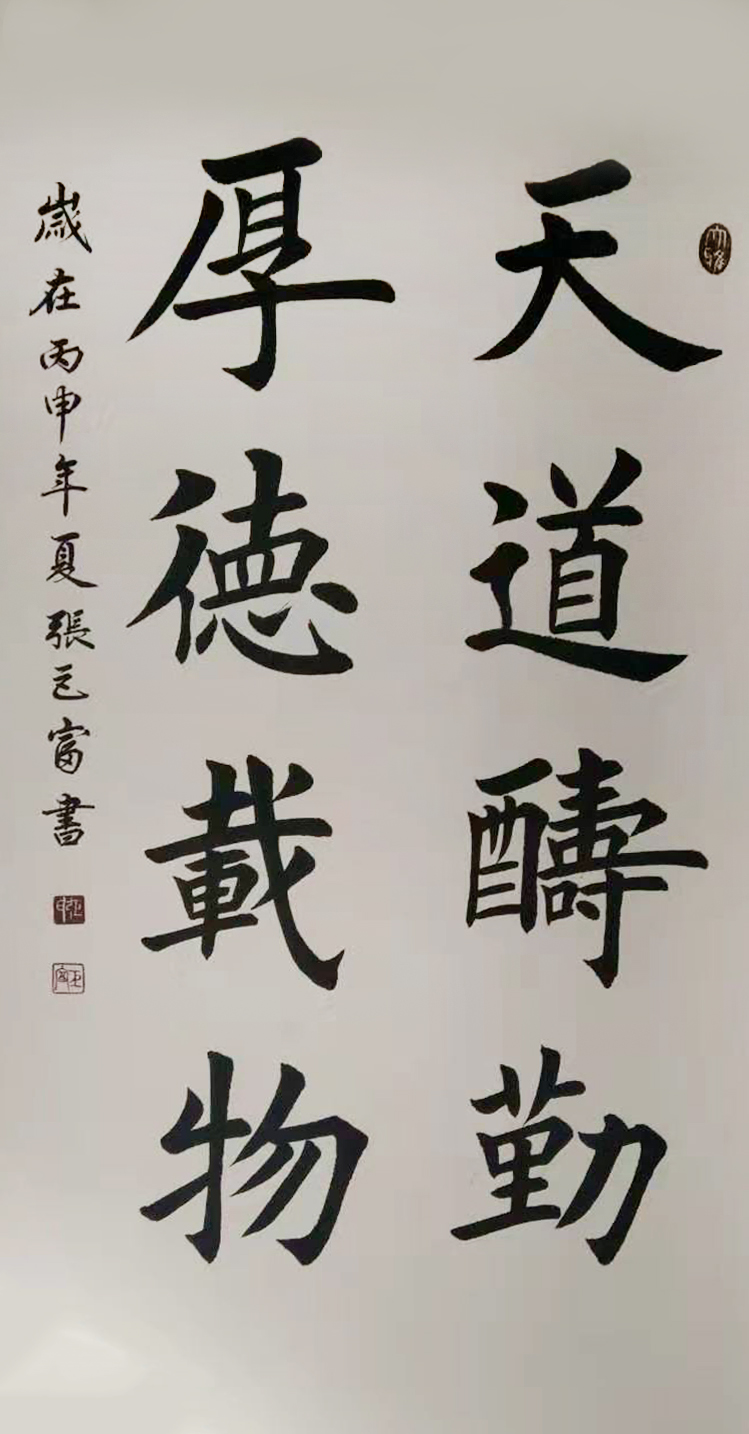 天道醻勤
厚徳載物
歲在丙申年夏張正富書